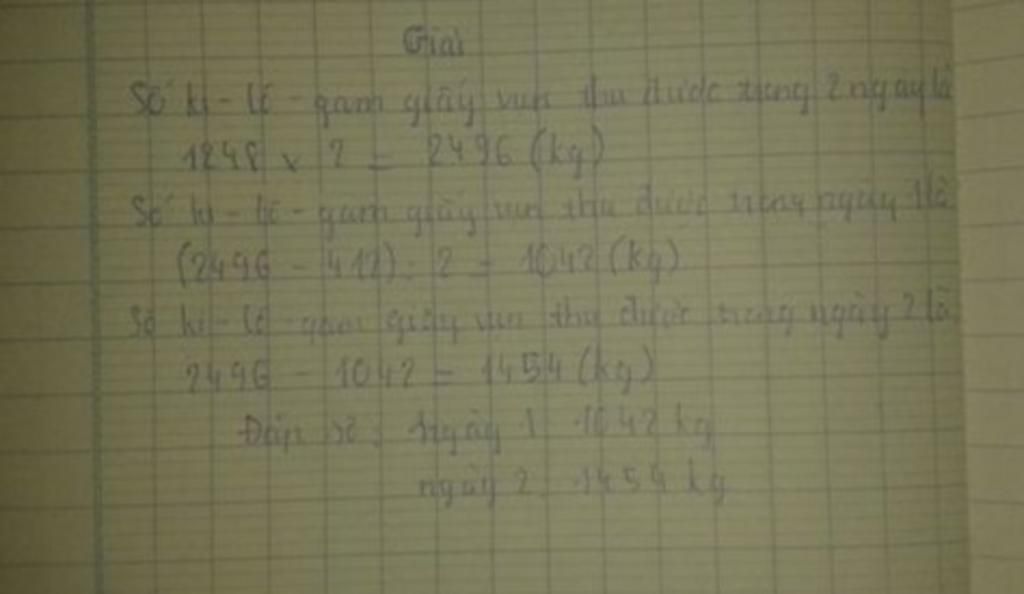 Giải
Số ki-lô-gam giấy vụn thu được trong 2 ngày là
1248 x 2 = 2496 (kg)
Số ki-lô-gam giấy vụn thu được trong ngày 1 là
(2496 - 412) : 2 = 1042 (kg)
Số ki-lô-gam giấy vụn thu được trong ngày 2 là
2496 - 1042 = 1454 (kg)
Đáp số : Ngày 1 : 1042 kg
ngày 2 : 1454 kg